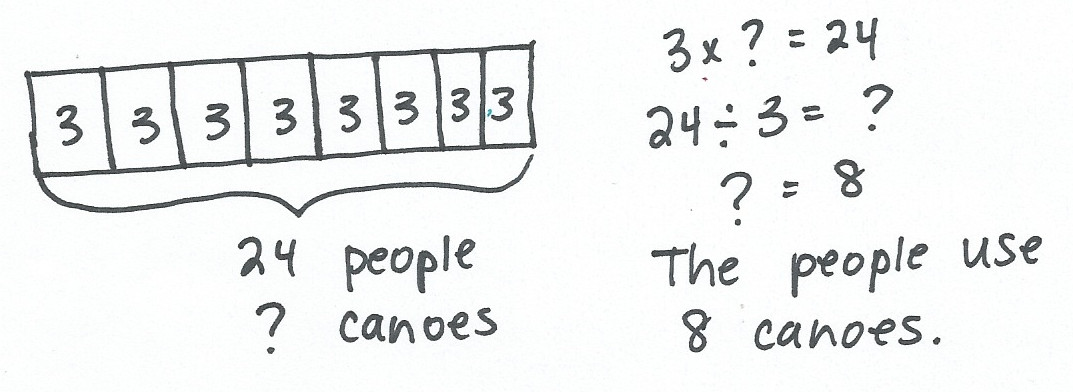 3 3 3 3 3 3 3 3
24 people
? canoes
3 x ? = 24
24 ÷ 3 = ?
? = 8
The people use
8 canoes.